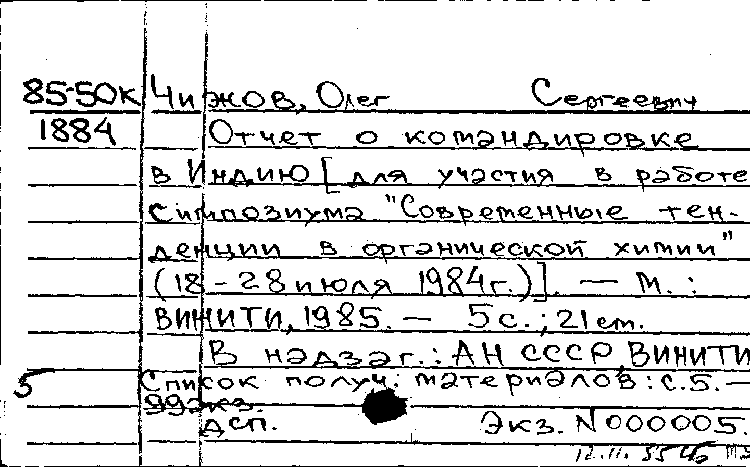 85-50к Чижов, Олег Сергеевич
1884 Отчет о командировке
в Индию [для участия в работе
симпозиума "Современные тен-
денции в органической химии"
(18-28 июля 1984г.)]. — М.:
ВИНИТИ, 1985. — 5с.; 21см.
В надзаг.: АН СССР, ВИНИТИ
5 Список получ. материалов: с.5. —
99экз.
ДСП. Экз. N000005.
12.11.85